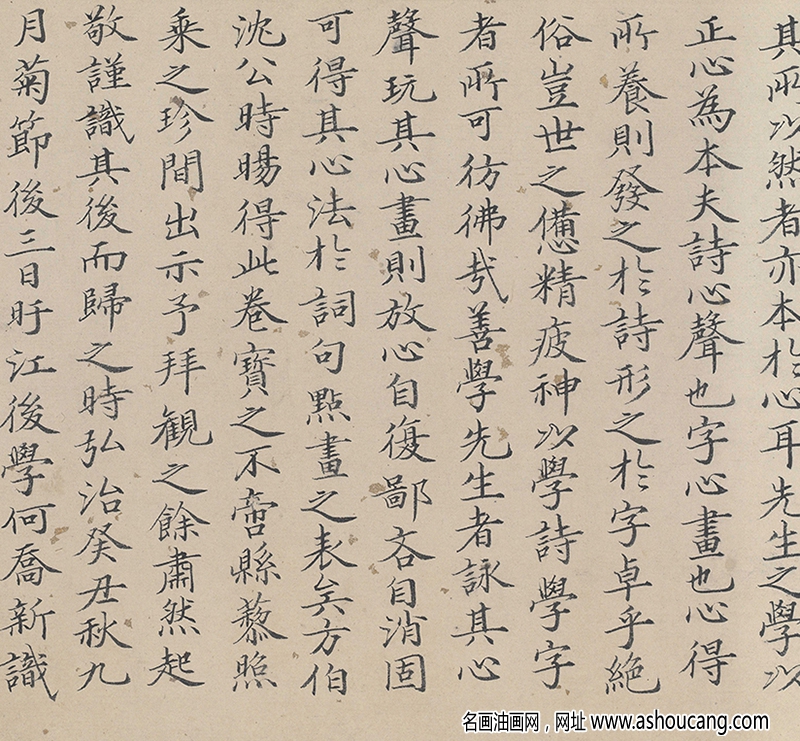 其所以然者亦本於心耳先生之學以
正心為本夫詩心聲也字心畫也心得
所養則發之於詩形之於字卓乎絕
俗豈世之憊精疲神以學詩學字
者所可彷彿哉善學先生者詠其心
聲玩其心畫則放心自復鄙吝自消固
可得其心法於詞句點畫之表矣方伯
沈公時暘得此卷寶之不啻縣藜照
乘之珍間出示予拜觀之餘肅然起
敬謹識其後而歸之時弘治癸丑秋九
月菊節後三日盱江後學何喬新識
名画油画网，网址 www.ashoucang.com